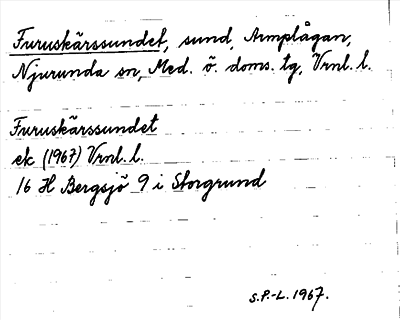 Furuskärssundet, sund, Armplågan,
Njurunda sn, Med. ö. doms. tg, Vrnl. l.
Furuskärssundet
ek (1967) Vrnl. l.
16 H Bergsjö 9 i Storgrund
S.P.-L. 1967.